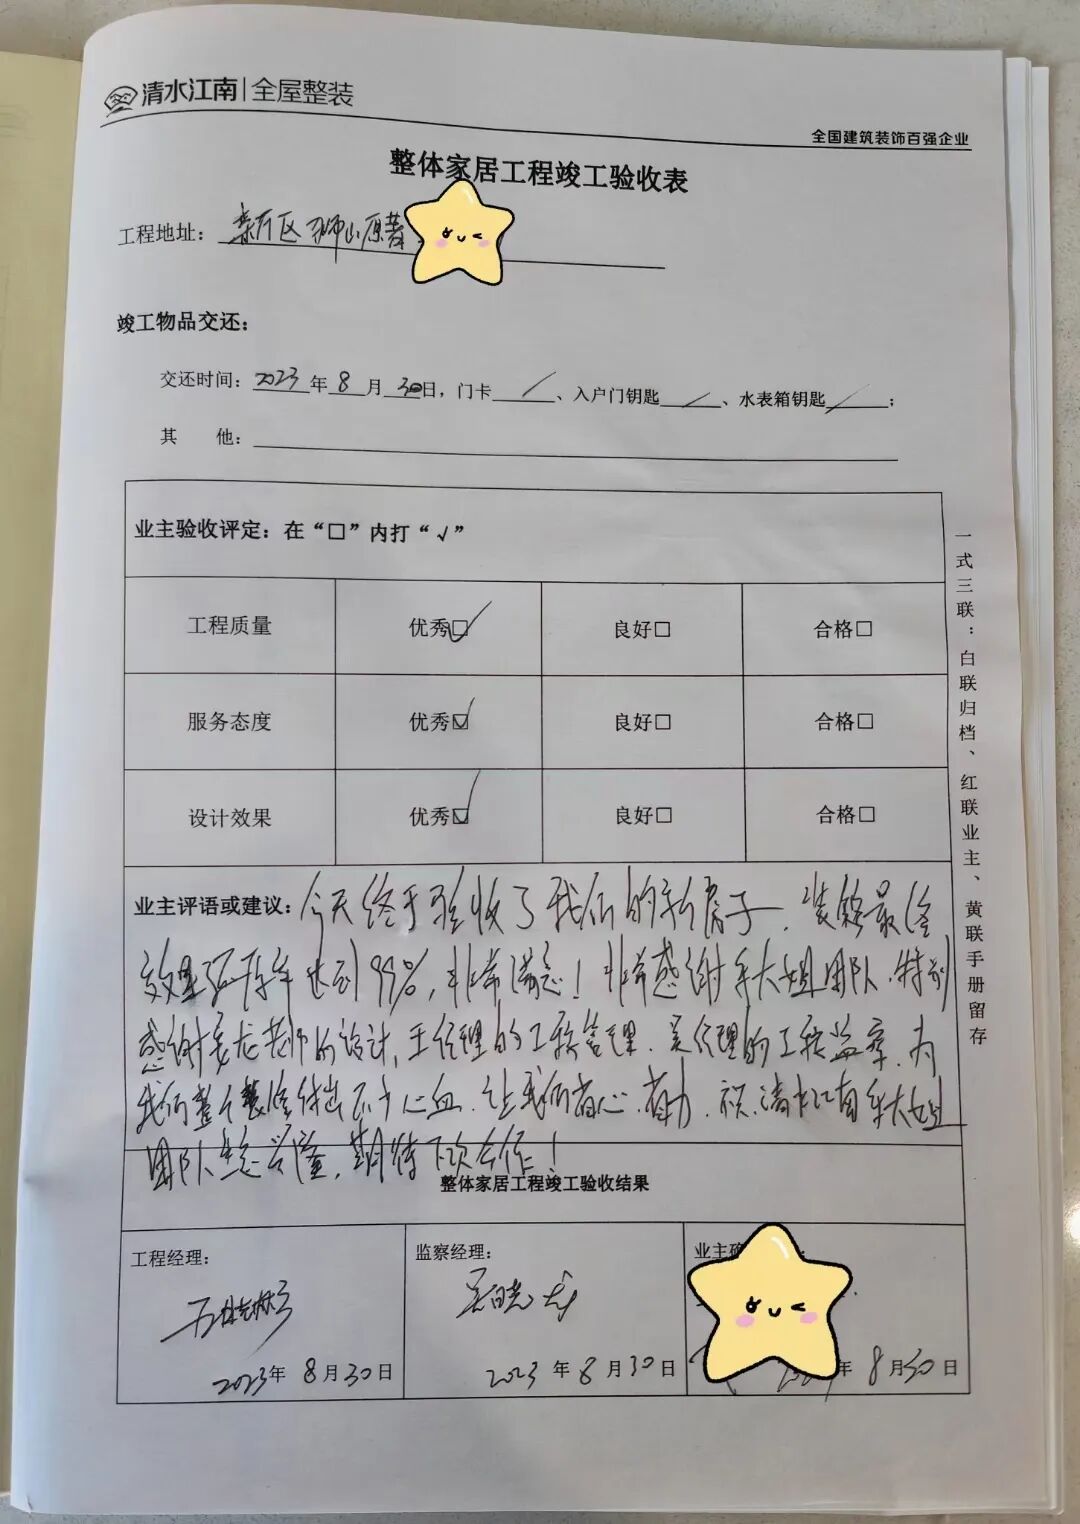 清水江南|全屋整装
全国建筑装饰百强企业
整体家居工程竣工验收表
工程地址: 区狮山原著
竣工物品交还:
交还时间: 2023 年 8 月 30 日, 门卡 / 、入户门钥匙 / 、水表箱钥匙 / ;
其 他:
业主验收评定: 在“□”内打“√”
工程质量 优秀☑ 良好□ 合格□
服务态度 优秀☑ 良好□ 合格□
设计效果 优秀☑ 良好□ 合格□
业主评语或建议: 今天终于验收了我们的新房子,装修最终
效果还原率达到99%,非常满意!非常感谢大姐团队,特别
感谢龙老师的设计、王经理的工程管理、吴经理的工程监察,为
我们整个装修付出不少心血,让我们省心、省力,祝清水江南大姐
团队生意兴隆,期待下次合作!
整体家居工程竣工验收结果
工程经理:
2023年 8 月 30 日
监察经理:
吴晓龙
2023 年 8 月 30 日
业主
年 8 月 30 日
一式三联:白联归档、红联业主、黄联手册留存